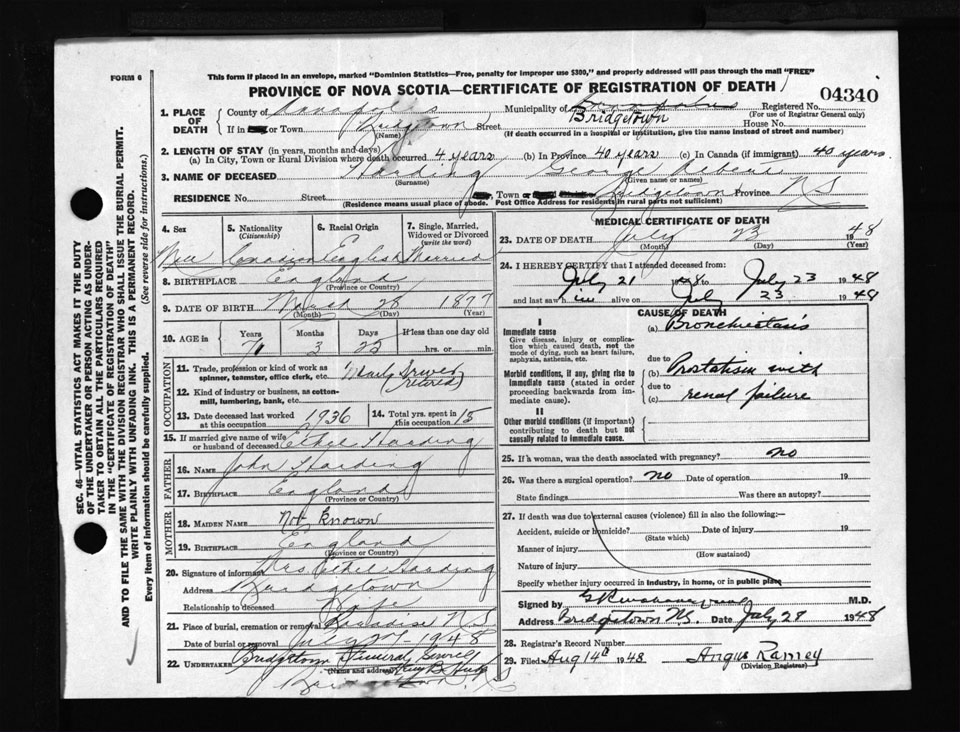 FORM 6
This form if placed in an envelope, marked "Dominion Statistics—Free, penalty for improper use $300," and properly addressed will pass through the mail "FREE"
PROVINCE OF NOVA SCOTIA—CERTIFICATE OF REGISTRATION OF DEATH
04340
1. PLACE OF DEATH
County of Annapolis Municipality of Annapolis Registered No.
(For use of Registrar General only)
If in or Town Bridgetown Street Bridgetown House No.
(Name) (If death occurred in a hospital or institution, give the name instead of street and number)
2. LENGTH OF STAY (in years, months and days)
(a) In City, Town or Rural Division where death occurred 4 years (b) In Province 40 years (c) In Canada (if immigrant) 40 years
3. NAME OF DECEASED Harding George
(Surname) (Given name or names)
RESIDENCE No. Street Town or Bridgetown Province N S
(Residence means usual place of abode. Post Office Address for residents in rural parts not sufficient)
4. Sex 5. Nationality (Citizenship) 6. Racial Origin 7. Single, Married, Widowed or Divorced (write the word)
Canadian English Married
8. BIRTHPLACE England
(Province or Country)
9. DATE OF BIRTH March 28 1877
(Month) (Day) (Year)
10. AGE in Years Months Days If less than one day old
71 3 25 hrs. or min.
OCCUPATION
11. Trade, profession or kind of work as spinner, teamster, office clerk, etc. Mail Driver (retired)
12. Kind of industry or business, as cotton-mill, lumbering, bank, etc.
13. Date deceased last worked at this occupation 1936 14. Total yrs. spent in this occupation 15
15. If married give name of wife or husband of deceased Ethel Harding
FATHER
16. NAME John Harding
17. BIRTHPLACE England
(Province or Country)
MOTHER
18. MAIDEN NAME Not Known
19. BIRTHPLACE England
(Province or Country)
20. Signature of informant Mrs Ethel Harding
Address Bridgetown
Relationship to deceased
21. Place of burial, cremation or removal Paradise N.S
Date of burial or removal July 1948
22. UNDERTAKER Bridgetown Funeral Service
(Name and address)
MEDICAL CERTIFICATE OF DEATH
23. DATE OF DEATH July 23 1948
(Month) (Day) (Year)
24. I HEREBY CERTIFY that I attended deceased from:
July 21 1948 to July 23 1948
and last saw him alive on July 23 1948
CAUSE OF DEATH
I
Immediate cause
Give disease, injury or complication which caused death, not the mode of dying, such as heart failure, asphyxia, asthenia, etc.
(a) Bronchiectasis
due to
Morbid conditions, if any, giving rise to immediate cause (stated in order proceeding backwards from immediate cause).
(b) Prostatism with
due to
(c) renal failure
II
Other morbid conditions (if important) contributing to death but not causally related to immediate cause.
25. If a woman, was the death associated with pregnancy? no
26. Was there a surgical operation? no Date of operation 19
State findings Was there an autopsy?
27. If death was due to external causes (violence) fill in also the following:—
Accident, suicide or homicide? Date of injury 19
(State which)
Manner of injury
(How sustained)
Nature of injury
Specify whether injury occurred in industry, in home, or in public place
Signed by M.D.
Address Bridgetown N.S. Date July 28 1948
28. Registrar's Record Number
29. Filed Aug 14th 1948 Angus Ramey
(Division Registrar)
SEC. 46—VITAL STATISTICS ACT MAKES IT THE DUTY
OF THE UNDERTAKER OR PERSON ACTING AS UNDER-
TAKER TO OBTAIN ALL THE PARTICULARS REQUIRED
IN THE "CERTIFICATE OF REGISTRATION OF DEATH"
AND TO FILE THE SAME WITH THE DIVISION REGISTRAR WHO SHALL ISSUE THE BURIAL PERMIT.
WRITE PLAINLY WITH UNFADING INK. THIS IS A PERMANENT RECORD.
Every item of information should be carefully supplied. (See reverse side for instructions.)